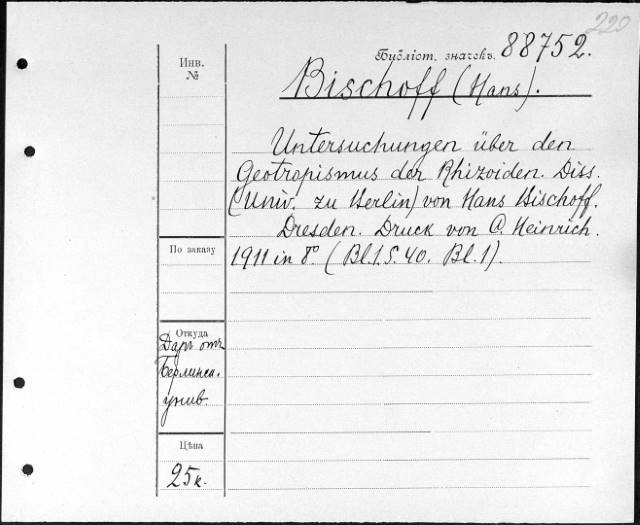 220
Инв.
№
Библіот. значекъ. 88752.
Bischoff (Hans).
Untersuchungen über den
Geotropismus der Rhizoiden. Diss.
(Univ. zu Berlin) von Hans Bischoff.
Dresden. Druck von C. Heinrich.
1911 in 8° (Bl.1.S.40. Bl.1).
По заказу
Откуда
Даръ отъ
Берлинск.
унив.
Цѣна
25к.